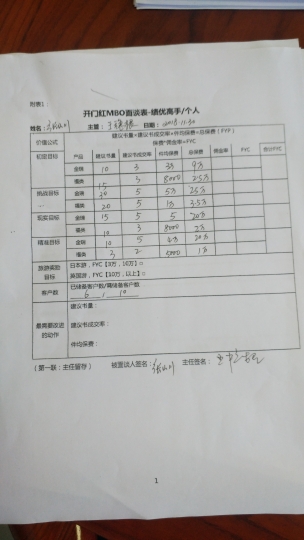 附表1：
开门红MBO面谈表-绩优高手/个人
姓名： 主管： 日期：2018.11.30
价值公式 建议书量×建议书成交率×件均保费=总保费（FYP）
保费*佣金率=FYC
产品 建议书量 建议书成交率 件均保费 总保费 佣金率 FYC 合计FYC
目标 金瑞 10 3 3万 9万
福类 15 3 8000 2.5万
挑战目标 金瑞 20 5 5万 25万
福类 20 5 1万 3.5万
现实目标 金瑞 15 5 5 20万
福类 10 3 8000 2万
精准目标 金瑞 10 5 4万 20万
福类 3 2 5000 1万
旅游奖励目标 日本游，FYC【3万，10万】□
英国游，FYC【10万，以上】□
客户数 已储备客户数/需储备客户数
6 / 10
最需要改进的动作 建议书量：
建议书成交率：
件均保费：
（第一联：主任留存） 被面谈人签名： 主任签名：
1